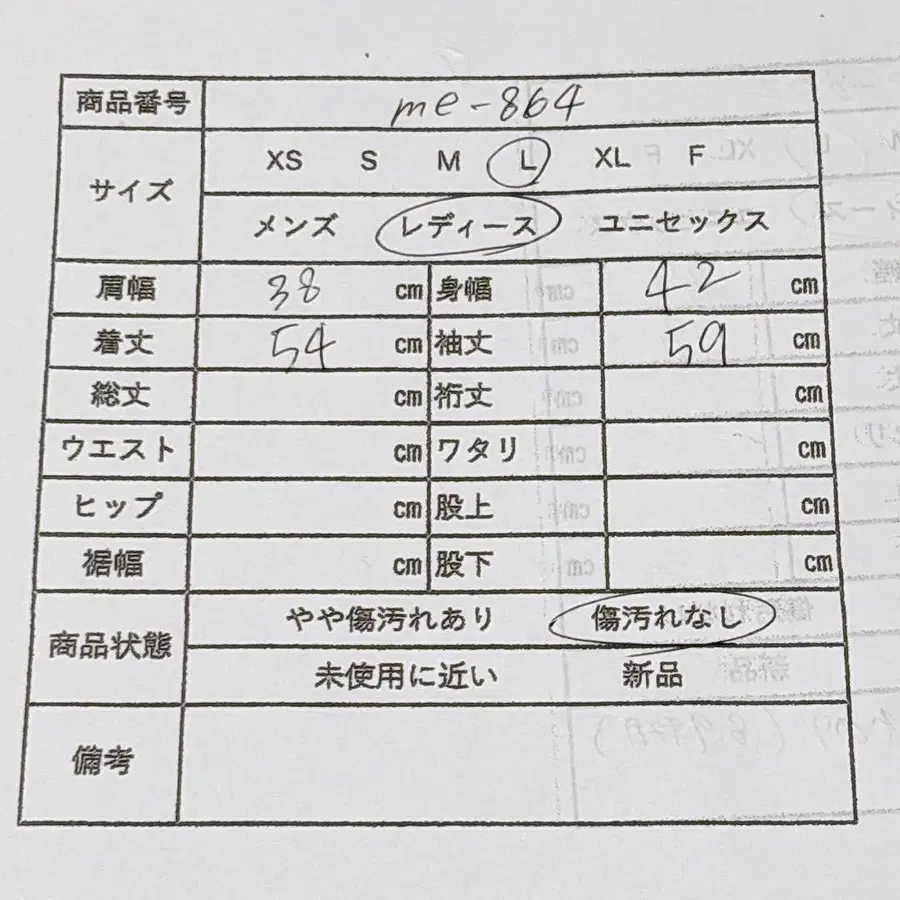 商品番号 me-864
サイズ XS S M L XL F
メンズ レディース ユニセックス
肩幅 38 cm 身幅 42 cm
着丈 54 cm 袖丈 59 cm
総丈 cm 裄丈 cm
ウエスト cm ワタリ cm
ヒップ cm 股上 cm
裾幅 cm 股下 cm
商品状態 やや傷汚れあり 傷汚れなし
未使用に近い 新品
備考